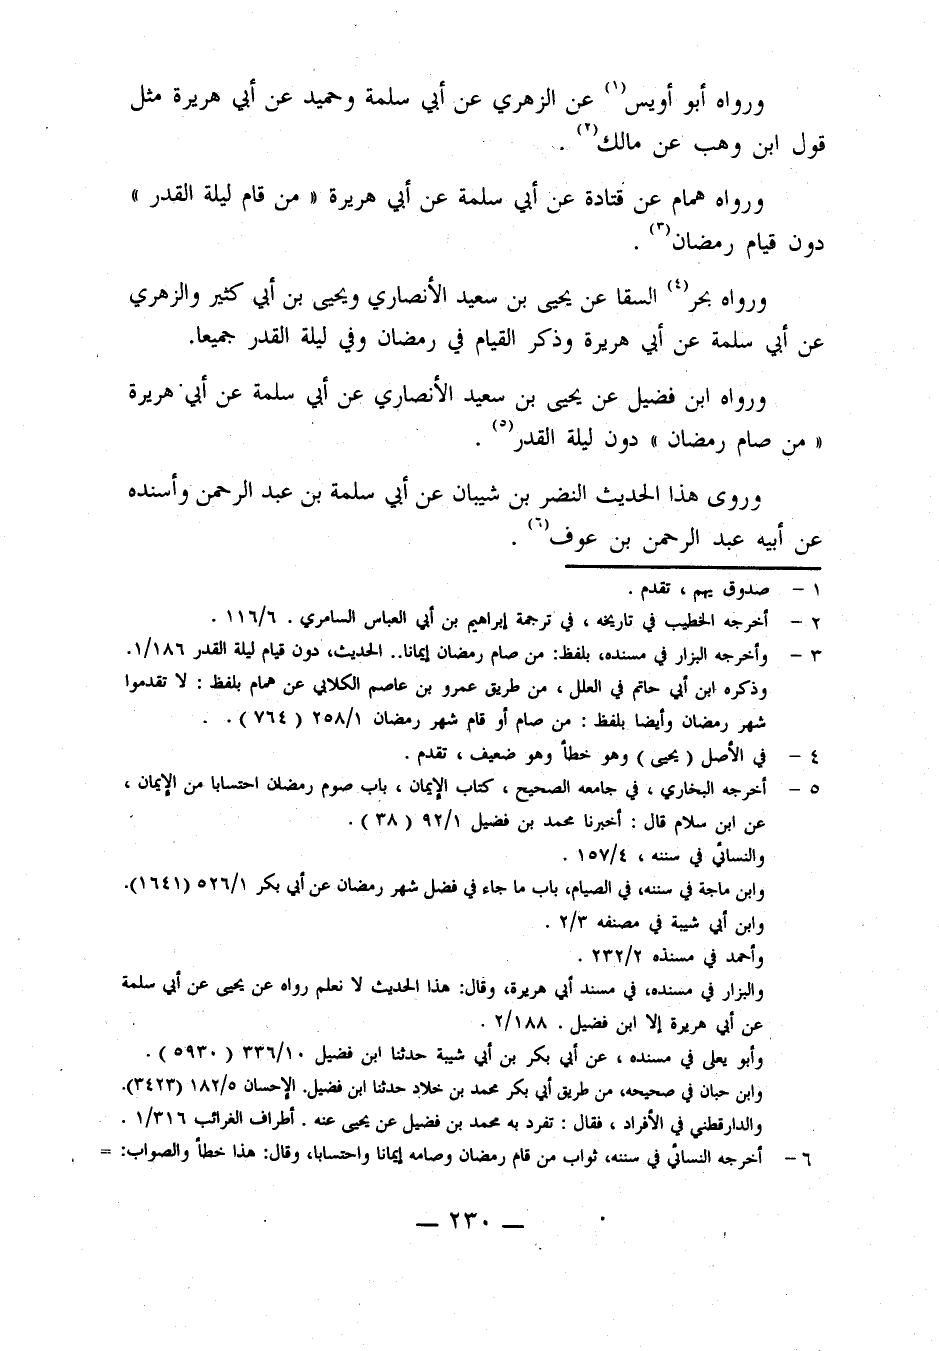 ورواه أبو أويس(١) عن الزهري عن أبي سلمة وحميد عن أبي هريرة مثل
قول ابن وهب عن مالك(٢) .
ورواه همام عن قتادة عن أبي سلمة عن أبي هريرة « من قام ليلة القدر »
دون قيام رمضان(٣) .
ورواه بحر(٤) السقا عن يحيى بن سعيد الأنصاري ويحيى بن أبي كثير والزهري
عن أبي سلمة عن أبي هريرة وذكر القيام في رمضان وفي ليلة القدر جميعا.
ورواه ابن فضيل عن يحيى بن سعيد الأنصاري عن أبي سلمة عن أبي هريرة
« من صام رمضان » دون ليلة القدر(٥) .
وروى هذا الحديث النضر بن شيبان عن أبي سلمة بن عبد الرحمن وأسنده
عن أبيه عبد الرحمن بن عوف(٦) .
١ – صدوق يهم ، تقدم .
٢ – أخرجه الخطيب في تاريخه ، في ترجمة إبراهيم بن أبي العباس السامري . ١١٦/٦ .
٣ – وأخرجه البزار في مسنده، بلفظ: من صام رمضان إيمانا.. الحديث، دون قيام ليلة القدر ١/١٨٦.
وذكره ابن أبي حاتم في العلل ، من طريق عمرو بن عاصم الكلابي عن همام بلفظ : لا تقدموا
شهر رمضان وأيضا بلفظ : من صام أو قام شهر رمضان ٢٥٨/١ ( ٧٦٤ ) .
٤ – في الأصل ( يحيى ) وهو خطأ وهو ضعيف ، تقدم .
٥ – أخرجه البخاري ، في جامعه الصحيح ، كتاب الإيمان ، باب صوم رمضان احتسابا من الإيمان ،
عن ابن سلام قال : أخبرنا محمد بن فضيل ٩٢/١ ( ٣٨ ) .
والنسائي في سننه ، ١٥٧/٤ .
وابن ماجة في سننه، في الصيام، باب ما جاء في فضل شهر رمضان عن أبي بكر ٥٢٦/١ (١٦٤١).
وابن أبي شيبة في مصنفه ٢/٣ .
وأحمد في مسنده ٢٣٢/٢ .
والبزار في مسنده، في مسند أبي هريرة، وقال: هذا الحديث لا نعلم رواه عن يحيى عن أبي سلمة
عن أبي هريرة إلا ابن فضيل . ٢/١٨٨ .
وأبو يعلى في مسنده ، عن أبي بكر بن أبي شيبة حدثنا ابن فضيل ٣٣٦/١٠ ( ٥٩٣٠ ) .
وابن حبان في صحيحه، من طريق أبي بكر محمد بن خلاد حدثنا ابن فضيل. الإحسان ١٨٢/٥ (٣٤٢٣).
والدارقطني في الأفراد ، فقال : تفرد به محمد بن فضيل عن يحيى عنه . أطراف الغرائب ١/٣١٦ .
٦ – أخرجه النسائي في سننه، ثواب من قام رمضان وصامه إيمانا واحتسابا، وقال: هذا خطأ والصواب: =
— ٢٣٠ —